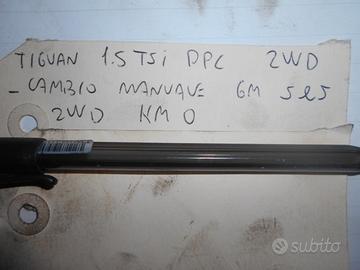 TIGUAN 1.5 TSi DPC 2WD
- CAMBIO MANUALE 6M SRS
2WD KM 0
subito